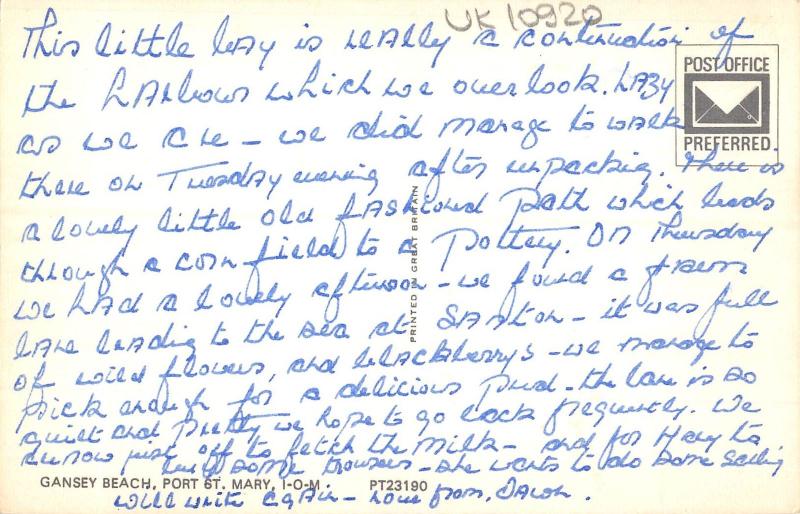 UK 10920
This little bay is really a continuation of
the harbour which we overlook. Lazy
as we are - we did manage to walk
there on Tuesday evening after unpacking. There is
a lovely little old fashioned path which leads
through a corn field to a Pottery. On Thursday
we had a lovely afternoon - we found a green
lane leading to the sea at Santon - it was full
of wild flowers, and blackberrys - we manage to
pick enough for a delicious pud - the lane is so
quiet and pretty we hope to go back frequently. We
are now just off to fetch the milk - and for to
buy some trousers - she wants to do some sailing
will write again - love from,
POST OFFICE
PREFERRED
PRINTED IN GREAT BRITAIN
GANSEY BEACH, PORT ST. MARY, I-O-M PT23190